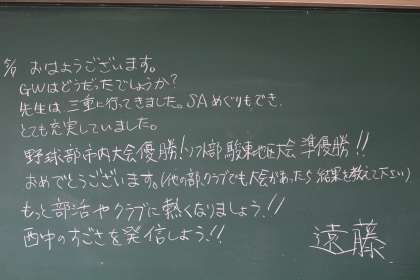 5/7 おはようございます。
GWはどうだったでしょうか?
先生は三重に行ってきました。SAめぐりもでき、
とても充実していました。
野球部市内大会優勝!ソフト部駿東地区大会準優勝!!
おめでとうございます。(他の部、クラブでも大会があったら結果を教えて下さい)
もっと部活やクラブに熱くなりましょう!!
西中のすごさを発信しよう!!
遠藤